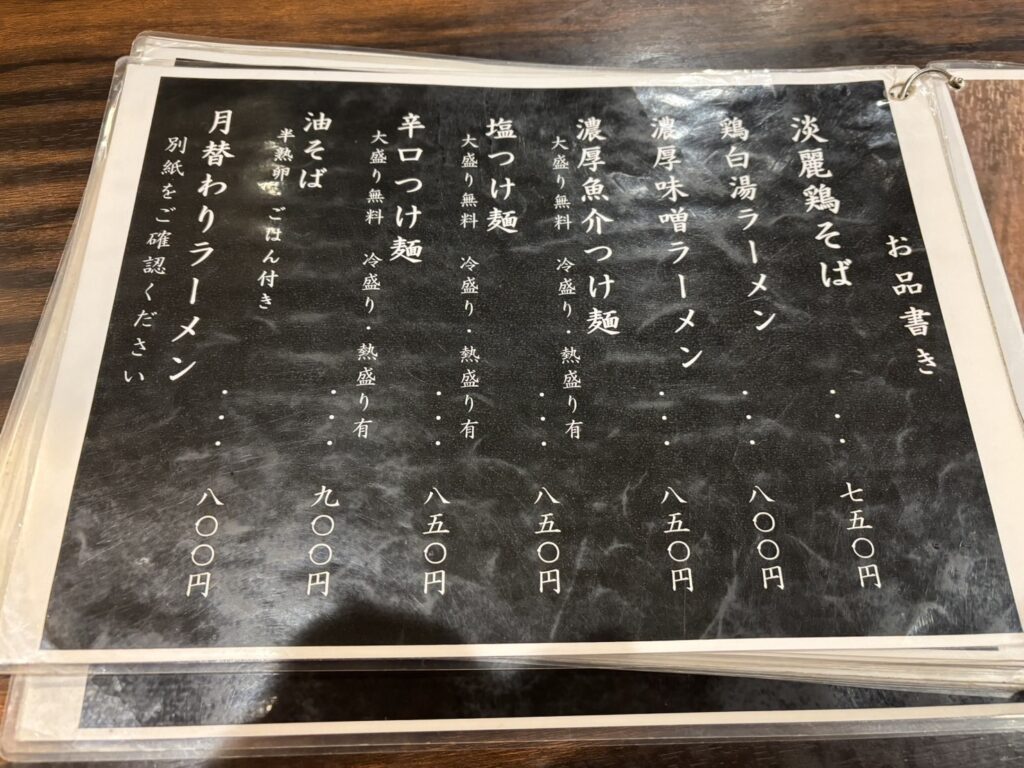 お品書き
淡麗鶏そば ・・・ 七五〇円
鶏白湯ラーメン ・・・ 八〇〇円
濃厚味噌ラーメン ・・・ 八五〇円
濃厚魚介つけ麺 ・・・ 八五〇円
大盛り無料 冷盛り・熱盛り有
塩つけ麺
大盛り無料 冷盛り・熱盛り有
辛口つけ麺 ・・・ 八五〇円
大盛り無料 冷盛り・熱盛り有
油そば ・・・ 九〇〇円
半熟卵 ごはん付き
月替わりラーメン ・・・ 八〇〇円
別紙をご確認ください